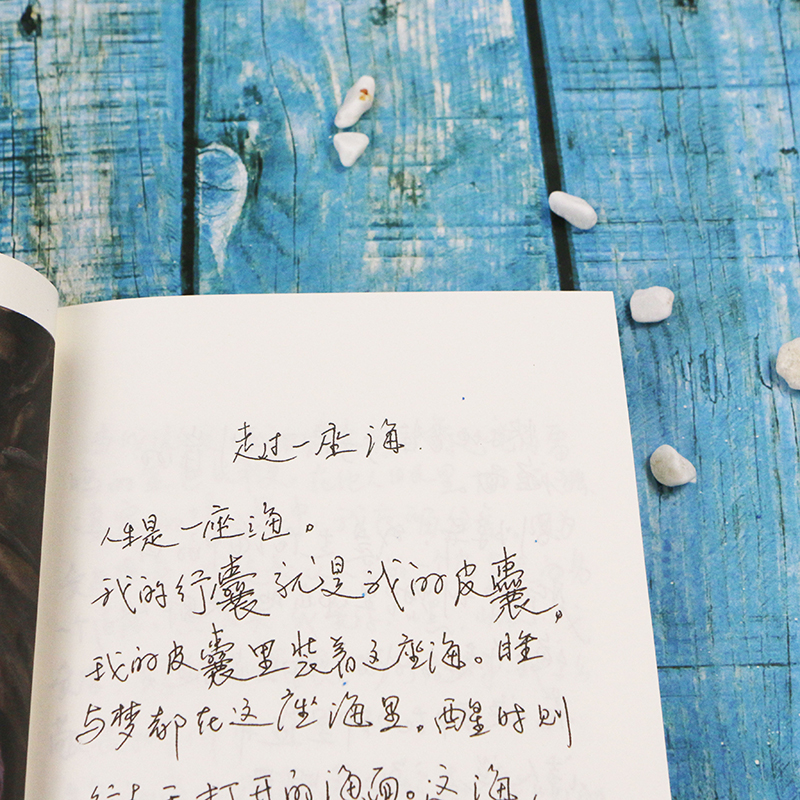 走过一座海
人生是一座海。
我的行囊就是我的皮囊，
我的皮囊里装着这座海。睡
与梦都在这座海里，醒时则
行走于打开的海面。这海，